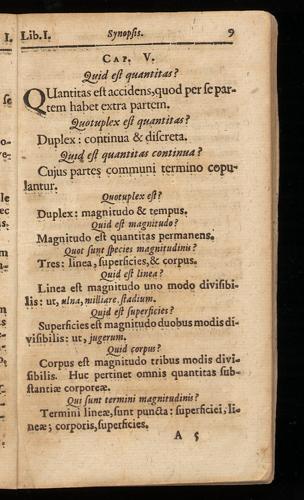 Lib. I. Synopsis. 9
CAP. V.
Quid est quantitas?
QUantitas est accidens, quod per se par-
tem habet extra partem.
Quotuplex est quantitas?
Duplex: continua & discreta.
Quid est quantitas continua?
Cujus partes communi termino copu-
lantur.
Quotuplex est?
Duplex: magnitudo & tempus.
Quid est magnitudo?
Magnitudo est quantitas permanens.
Quot sunt species magnitudinis?
Tres: linea, superficies, & corpus.
Quid est linea?
Linea est magnitudo uno modo divisibi-
lis: ut, ulna, milliare, stadium.
Quid est superficies?
Superficies est magnitudo duobus modis di-
visibilis: ut, jugerum.
Quid corpus?
Corpus est magnitudo tribus modis divi-
sibilis. Huc pertinet omnis quantitas sub-
stantiæ corporeæ.
Qui sunt termini magnitudinis?
Termini lineæ, sunt puncta: superficiei, li-
neæ; corporis, superficies.
A 5